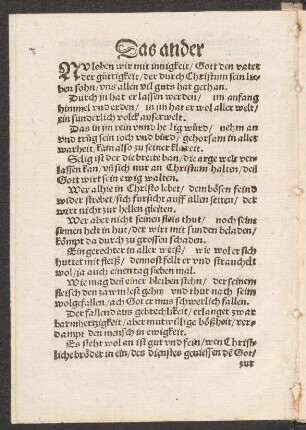 Das ander
NV loben wir mit innigkeit / Gott den vater
der güttigkeit / der durch Christum sein lie-
ben sohn / vns allen vil guts hat gethan.
Durch jn hat er lassen werden / im anfang
himmel vnd erden / in jm hat er wol aller welt /
ein sunderlich volck außerwelt.
Das in jm rein vnnd heilig würd / nehm an
vnd trüg sein joch vnd bürd / gehorsam in alles
warheit / käm also zu seiner klarheit.
Selig ist der die breite ban / die arge welt ver-
lassen kan / vñ sich nur an Christum halten / deñ
Gott wirt sein ewig walten.
Wer alhie in Christo lebet / dem bösen feind
wider strebet / sich fürsicht auff allen seiten / der
wirt nicht zur hellen gleiten.
Wer aber nicht seinen fleis thut / noch seine
sinnen helt in hut / der wirt mit sunden beladen /
kömpt da durch zu grossen schaden.
Ein gerechter in aller weiß / wie wol er sich
hutret mit fleiß / dennost fellt er vnd strauchelt
wol / ja auch einen tag sieben mal.
Wie mag deñ einer bleiben stehn / der seinem
fleisch den zawm lest gehn vnd thut nach seim
wolgefallen / ach Got er mus schwerlich fallen.
Der fallend aus gebrechlikeit / erlanget zwar
barmhertzigkeit / aber mutwillige bößheit / ver-
dampt den mensch in ewigkeit.
Es steht wol an ist gut vnd fein / wen Christ-
liche brőder in ein / des dienstes geniessen dẽ Got /
zur